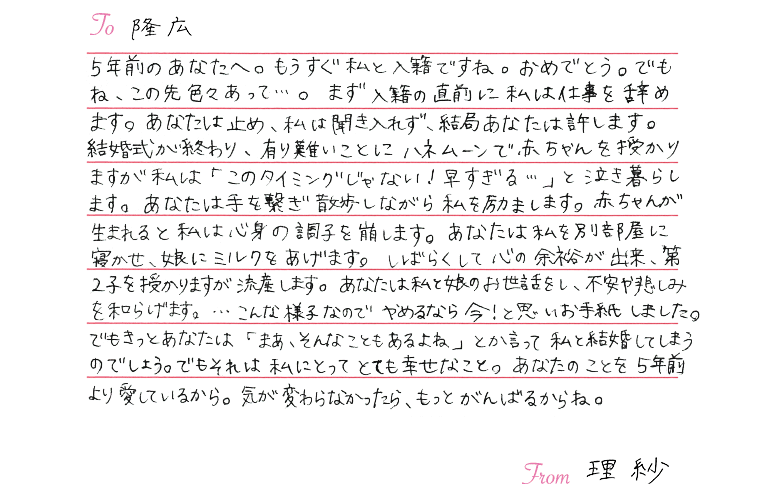 To 隆広
5年前のあなたへ。もうすぐ私と入籍ですね。おめでとう。でも
ね、この先色々あって…。まず入籍の直前に私は仕事を辞め
ます。あなたは止め、私は聞き入れず、結局あなたは許します。
結婚式が終わり、有り難いことにハネムーンで赤ちゃんを授かり
ますが私は「このタイミングじゃない!早すぎる…」と泣き暮らし
ます。あなたは手を繋ぎ散歩しながら私を励まします。赤ちゃんが
生まれると私は心身の調子を崩します。あなたは私を別部屋に
寝かせ、娘にミルクをあげます。しばらくして心の余裕が出来、第
2子を授かりますが流産します。あなたは私と娘のお世話をし、不安や悲しみ
を和らげます。…こんな様子なのでやめるなら今!と思いお手紙しました。
でもきっとあなたは「まあ、そんなこともあるよね。」とか言って私と結婚してしまう
のでしょう。でもそれは私にとってとても幸せなこと。あなたのことを5年前
より愛しているから。気が変わらなかったら、もっとがんばるからね。
From 理紗